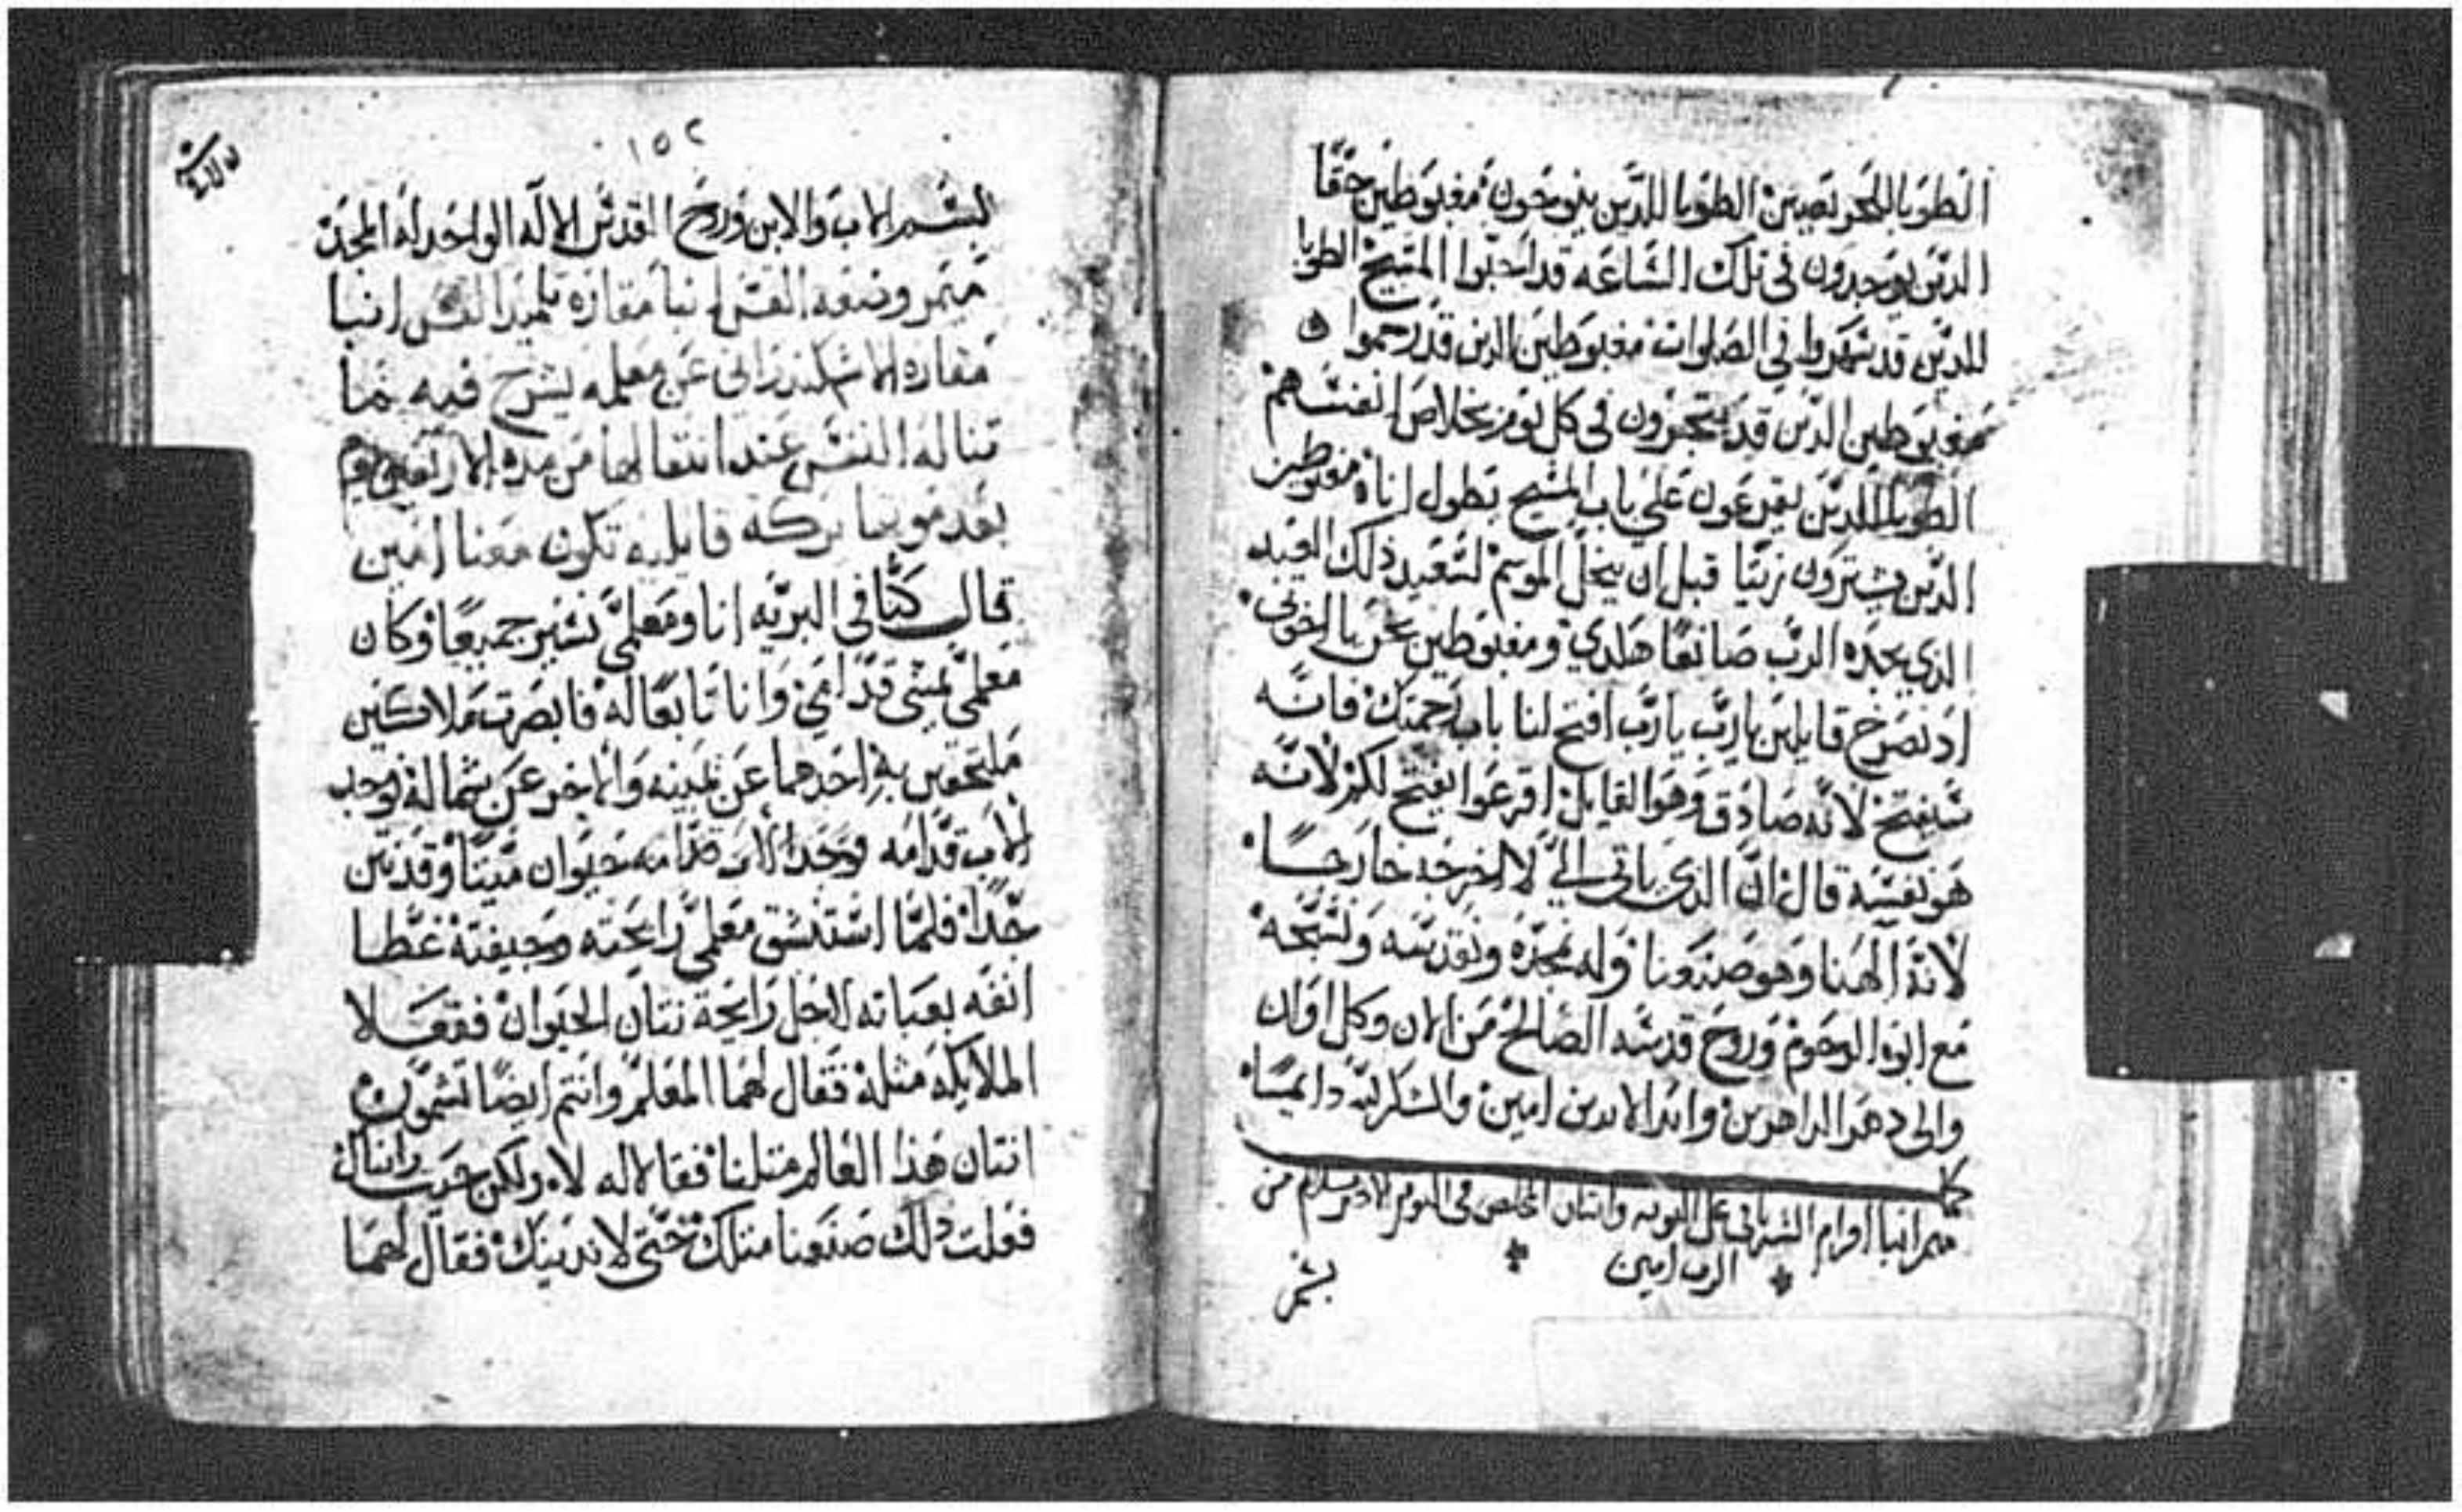 الطوبا للحريصين الطوبا للذين ينوحون مغبوطين حقا
الدين يوجدون في تلك الساعه قد احبوا المسيح الطوبا
للدين قد سهروا في الصلوات مغبوطين الدين قد رحموا
مغبوطين الدين قد يتجرون في كل يوم بخلاص انفسهم
الطوبا للدين يقرعون علي باب المسيح بطول اناه مغبوطين
الدين يشترون زيتا قبل ان ينحل الموسم لسعيد ذلك العبد
الذي يجده الرب صانعا هكدي ومغبوطين نحن يا اخوتي
اد نصرخ قايلين يارب يارب افتح لنا باب رحمتك فانه
سيفتح لانه صادق وهو القايل اقرعوا يفتح لكم لانه
هو نفسه قال ان الذي ياتي الي لا اخرجه خارجا
لانه الهنا وهو صنعنا وله نمجده ونقدسه ونسبحه
مع ابوه الرحوم وروح قدسه الصالح من الان وكل اوان
والى دهر الداهرين وابد الابدين امين والشكر لله دايمًا
كمل
ميمر انبا افرام السرياني على التوبه واتيان المخلص في اليوم الاخر بسلام من
الرب امين
بسم
١٥٢
بسم الاب والابن وروح القدس الاله الواحد له المجد
ميمر وضعه القس انبا مقاره تلميد القس انبا
مقاره الاسكندراني عن معلمه يشرح فيه ما
تناله النفس عند انتقالها من مده الاربعين يوم
بعد موتها بركه قايليه تكون معنا امين
قال كنا في البريه انا ومعلمي نسير جميعا وكان
معلمي يمشي قدامي وانا تابعا له فابصرت ملاكين
ملتحقين به احدهما عن يمينه والاخر عن شماله فوجد
الاب قدامه ووجد الاب قدامه حيوان ميتا وقد نتن
جدا فلما استنشق معلمي رايحته وجيفته غطا
انفه بعباته لاجل رايحة نتان الحيوان ففعلا
الملايكه مثله فقال لهما المعلم وانتم ايضا تشمون
انتان هذا العالم مثلنا فقالا له لا ولكن حيث راينال
فعلت دلك صنعنا مثلك حتى لا ندينك فقال لهما